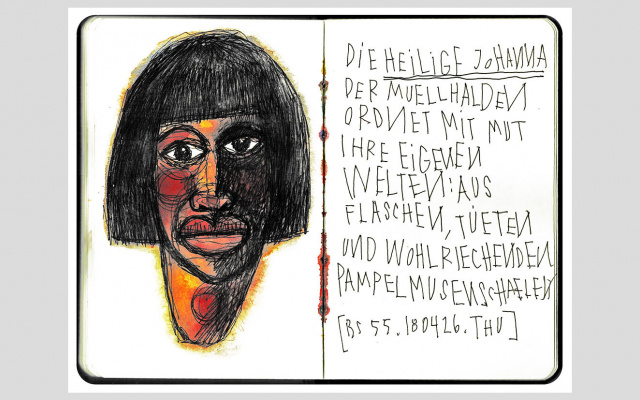 DIE HEILIGE JOHANNA
DER MUELLHALDEN
ORDNET MIT MUT
IHRE EIGENEN
WELTEN: AUS
FLASCHEN, TÜETEN
UND WOHLRIECHENDEN
PAMPELMUSENSCHAELEN
[BS 55.180426.THU]